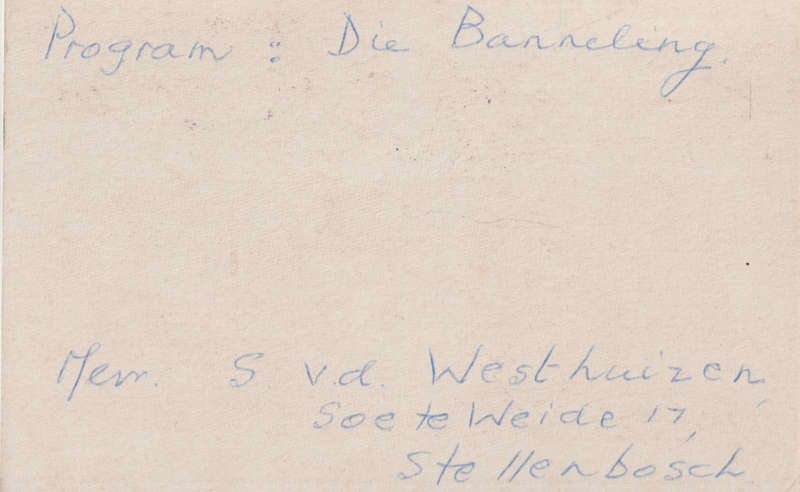 Program : Die Banneling.
Mev. S v.d. Westhuizen,
Soete Weide 17,
Stellenbosch